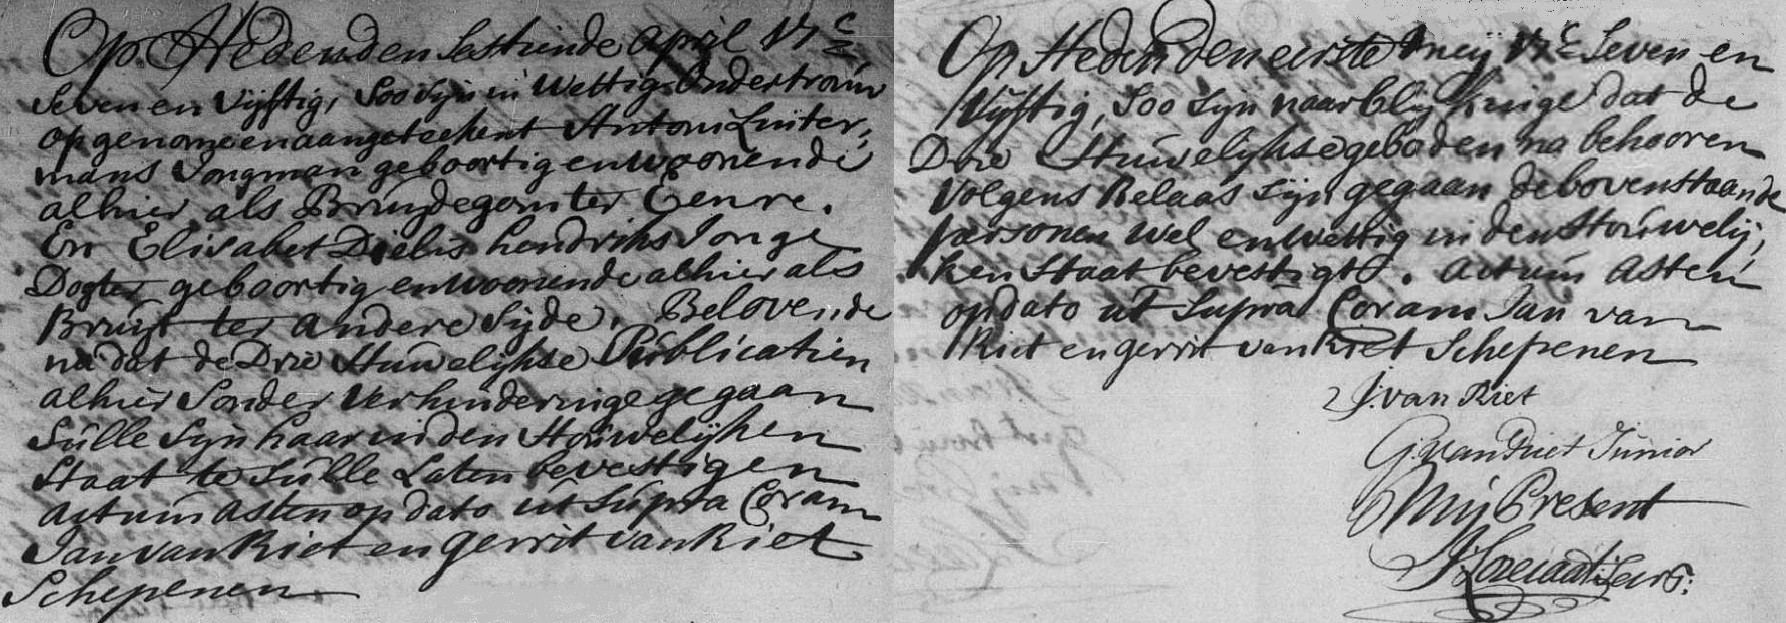 Op Heden den sestiende april 17 C
seven en vijftig, soo sijn in wettig ondertrouw
opgenome en aangeteekent Antoni Luiter,
mans Jongman geboortig en woonende
alhier als Bruijdegom ter Eenre.
En Elisabet Dielis hendriks Jonge
Dogter geboortig en woonende alhier als
Bruijt ter andere sijde. Belovende
na dat de Drie Huwelijkse Publicatien
alhier sonder verhinderinge gegaan
sulle sijn haar in den Houwelijken
staat te sulle laten bevestigen
actum asten op dato ut supra Coram
Jan van Riet en gerrit van Riet
Schepenen
Op Heden den eerste meij 17 C seven en
vijftig, soo sijn naar blijk dat de
Drie Huwelijkse geboden na behooren
volgens Relaas sijn gegaan de bovenstaande
persoonen wel en wettig in den Houwelij,
ken staat bevestigt. actum Asten
op dato ut supra Coram Jan van
Riet en gerrit van Riet Schepenen
J. van Riet
G. van Riet Junior
Mij Present
secrs: